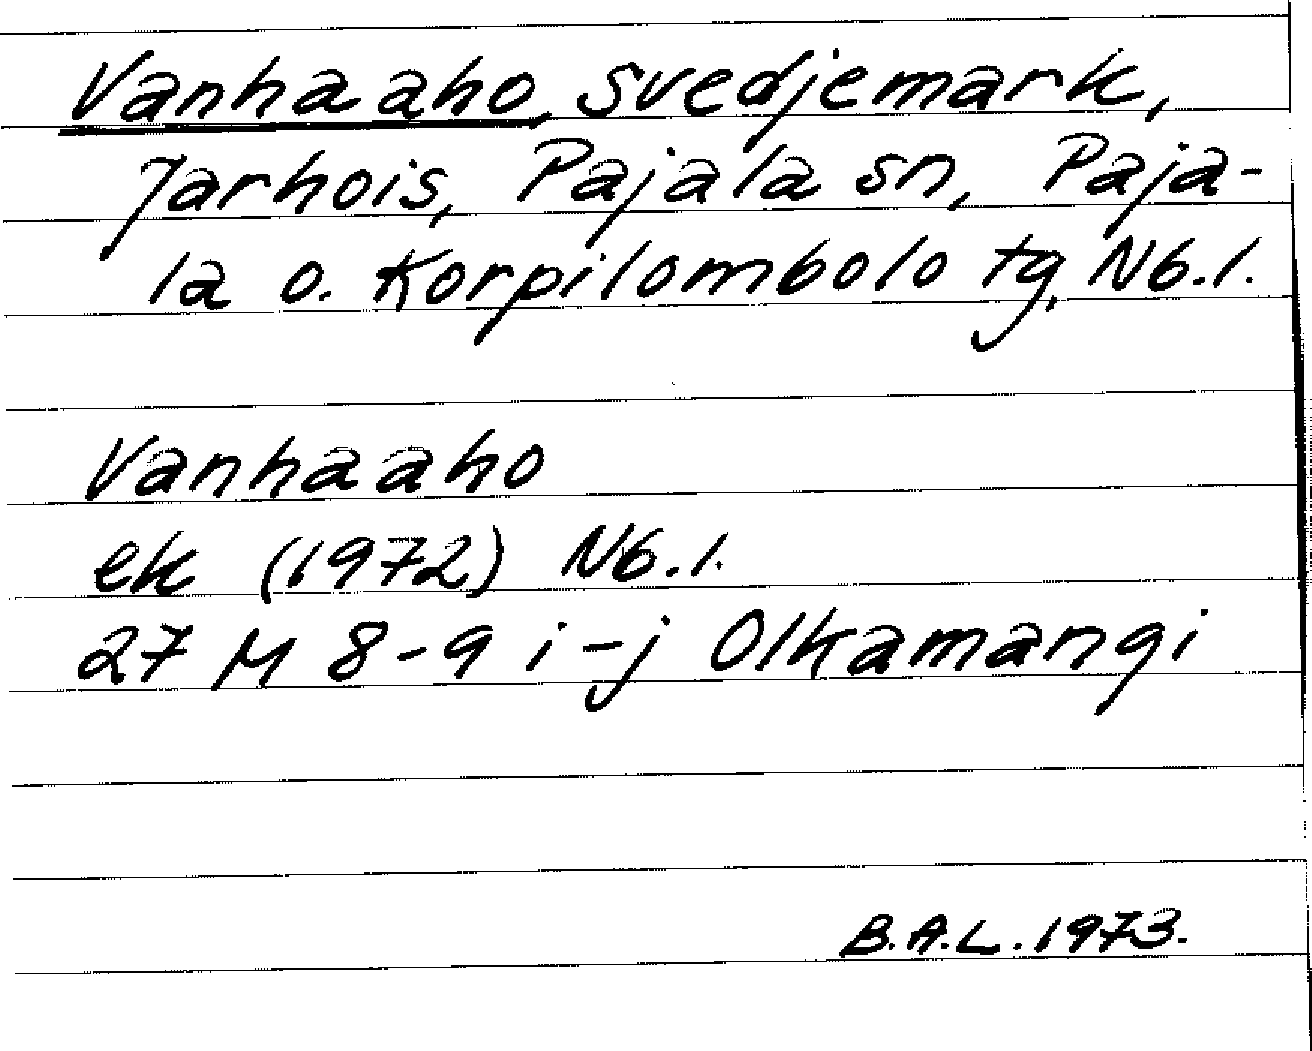 Vanhaaho, svedjemark,
Jarhois, Pajala sn, Paja-
la o. Korpilombolo tg, Nb.l.
Vanhaaho
ek (1972) Nb.l.
27 M 8-9 i-j Olkamangi
B.A.L. 1973.